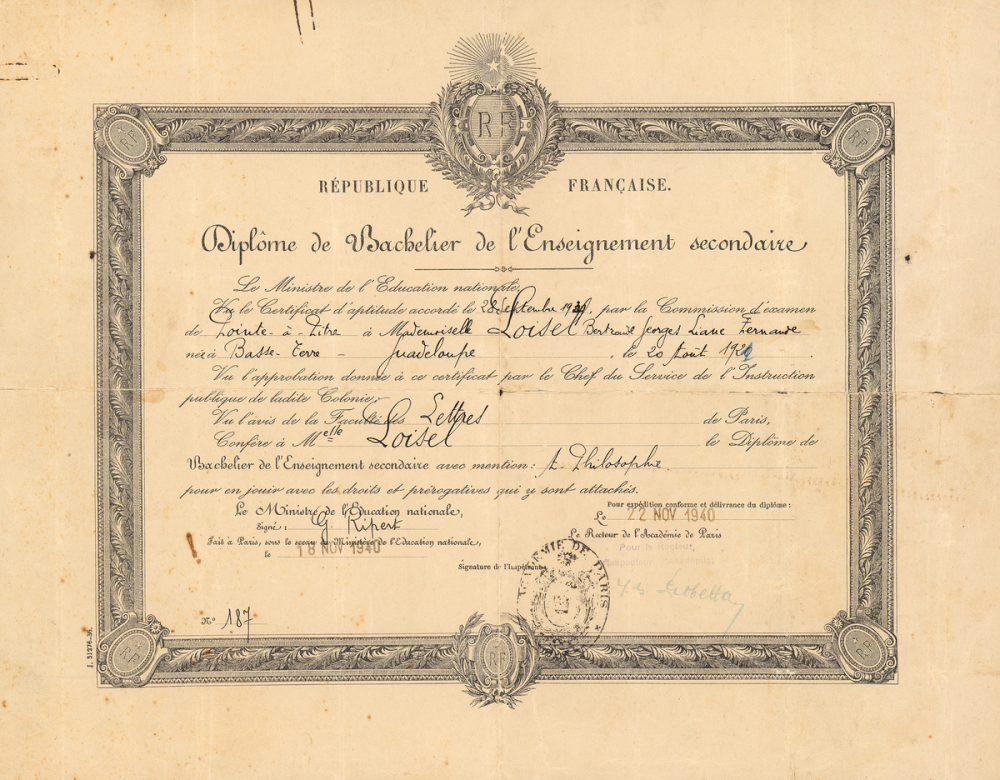 RF
RF
RF
RÉPUBLIQUE FRANÇAISE.
Diplôme de Bachelier de l'Enseignement secondaire
Le Ministre de l'Education nationale,
Vu le Certificat d'aptitude accordé le 28 Septembre, par la Commission d'examen
de Pointe-à-Pitre à Mademoiselle Loisel Bertrande Georges Liane Fernande
née à Basse-Terre - Guadeloupe, le 20 Août
Vu l'approbation donnée à ce certificat par le Chef du Service de l'Instruction
publique de ladite Colonie;
Vu l'avis de la Faculté des Lettres de Paris,
Confère à Melle Loisel le Diplôme de
Bachelier de l'Enseignement secondaire avec mention: A-Philosophie.
pour en jouir avec les droits et prérogatives qui y sont attachés.
Le Ministre de l'Education nationale,
Signé: G. Ripert
Fait à Paris, sous le sceau du Ministère de l'Education nationale,
le 18 NOV 1940
Pour expédition conforme et délivrance du diplôme:
Le 22 NOV 1940
Le Recteur de l'Académie de Paris
Pour le Recteur,
Signature de l'Impétrant
ACADÉMIE DE PARIS
N° 187
RF
RF
RF